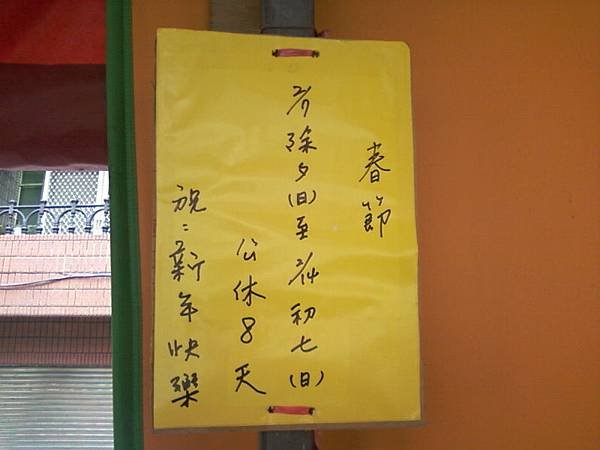 春節
2/7除夕(日)至2/14初七(日)
公休8天
祝：薪年快樂